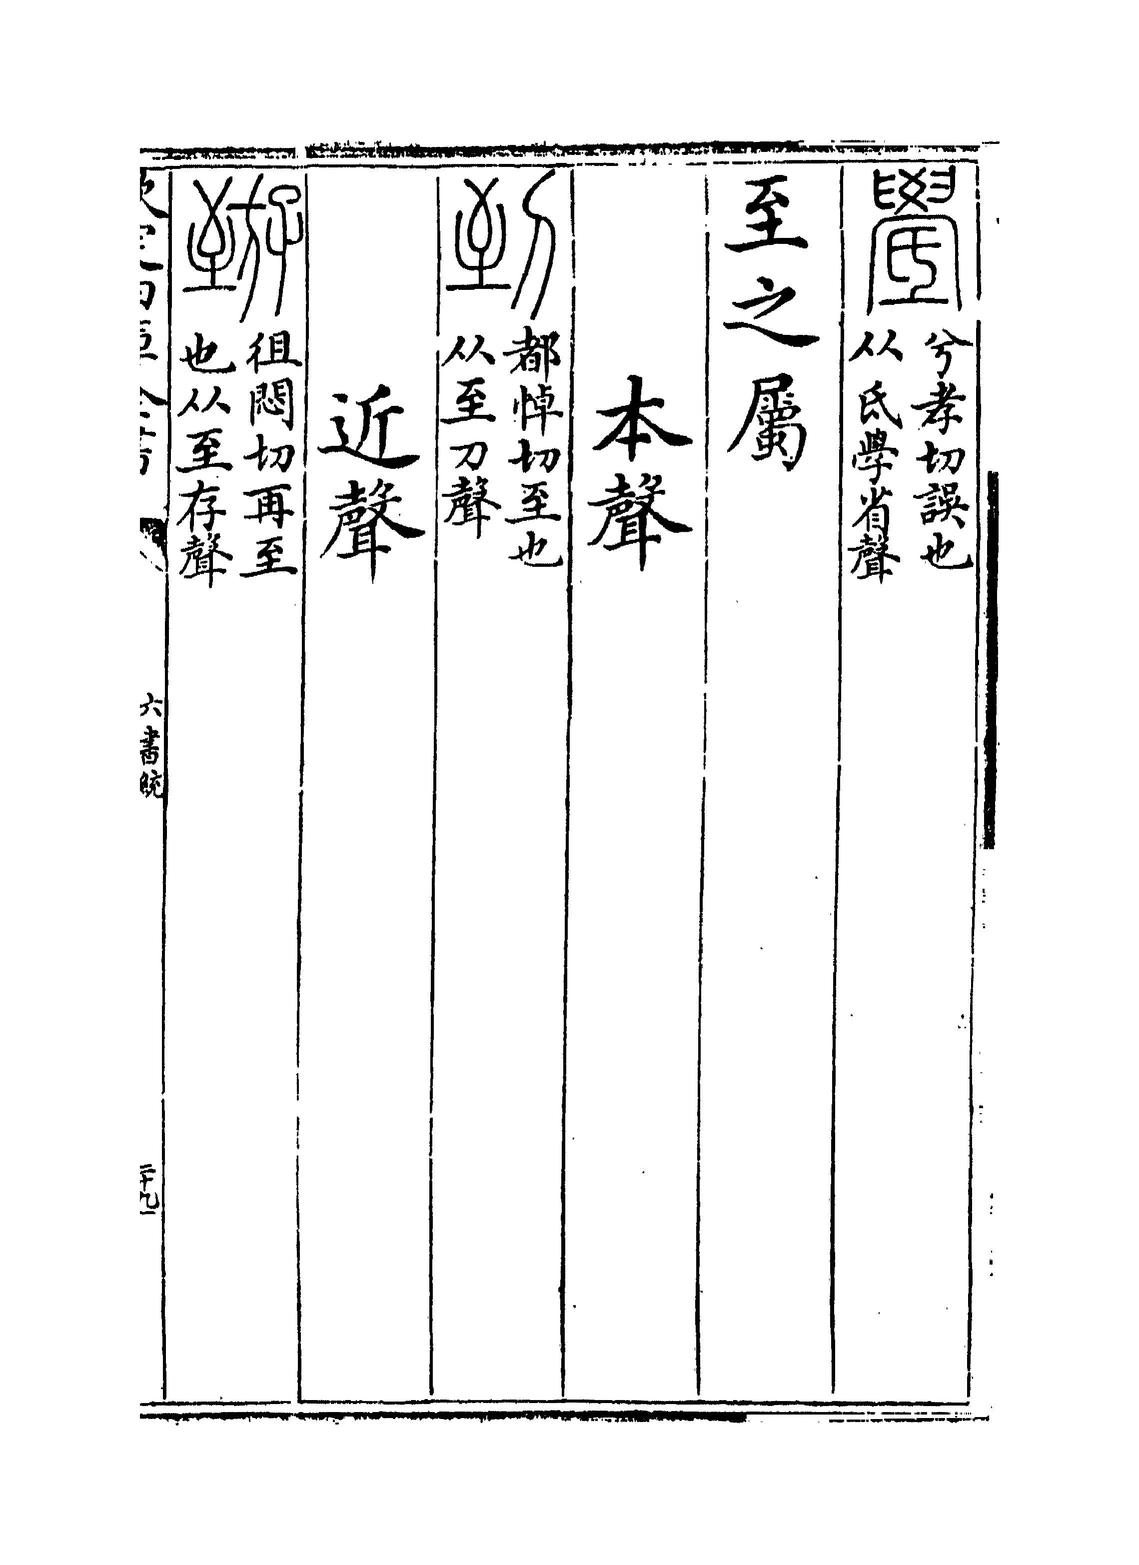 兮孝切誤也
从氏學省聲
至之屬
本聲
到
都悼切至也
从至刀聲
近聲
徂悶切再至
也从至存聲
六書統
二十九